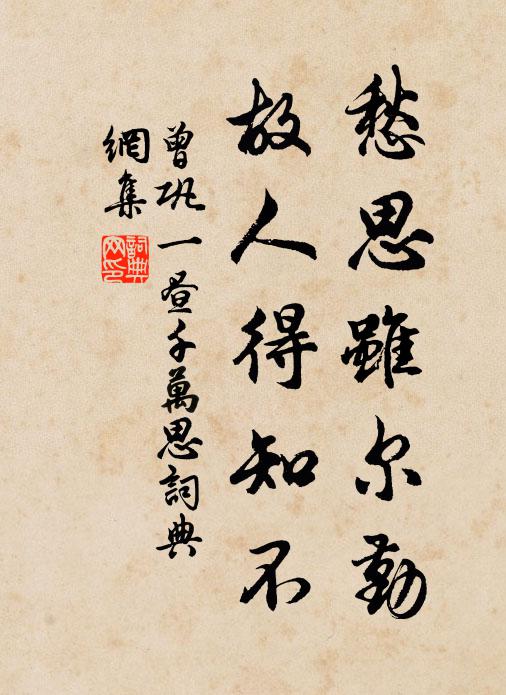 愁思雖尔勤
故人得知不
曾巩一昼千萬思詞典
網集
詞典网印